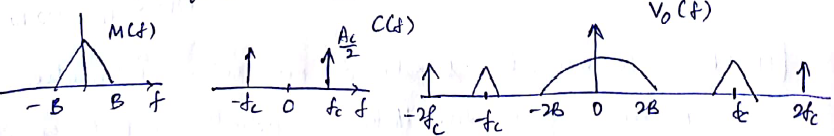 M(f)
-B B f
A_c/2 C(f)
-f_c 0 f_c f
V_0(f)
-2f_c -f_c -2B 0 2B f_c 2f_c